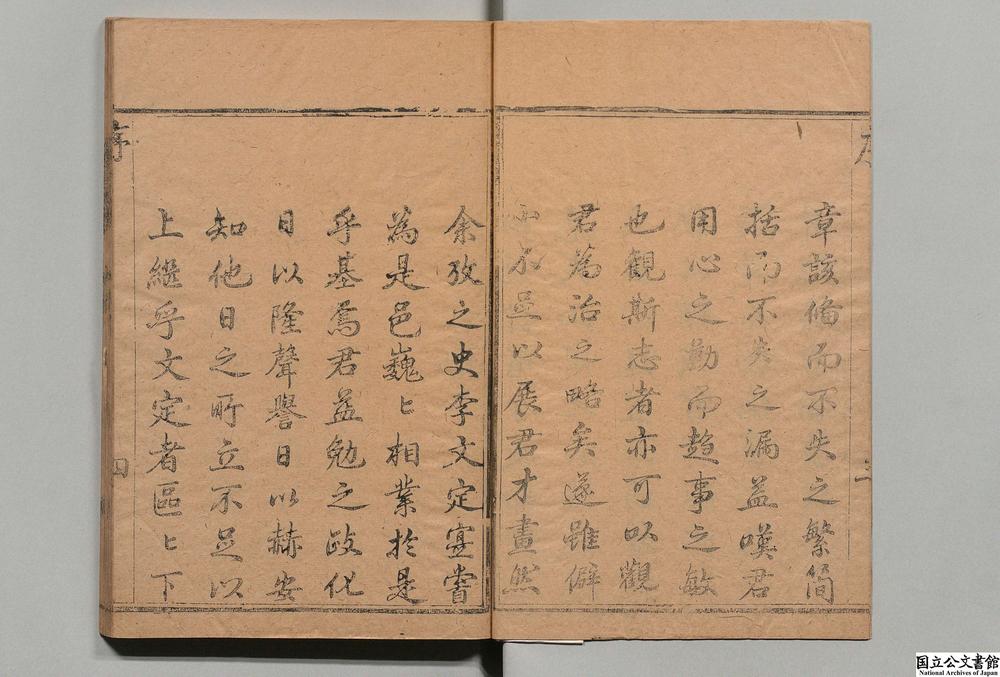 章該備而不失之繁簡
括而不失之漏益嘆君
用心之勤而趨事之敏
也觀斯志者亦可以觀
君為治之略矣遂雖僻
小不足以展君才畫然
余攷之史李文定寔嘗
為是邑巍〻相業於是
乎基焉君益勉之政化
日以隆聲譽日以赫安
知他日之所立不足以
上繼乎文定者區〻下
序
四
国立公文書館
National Archives of Japan